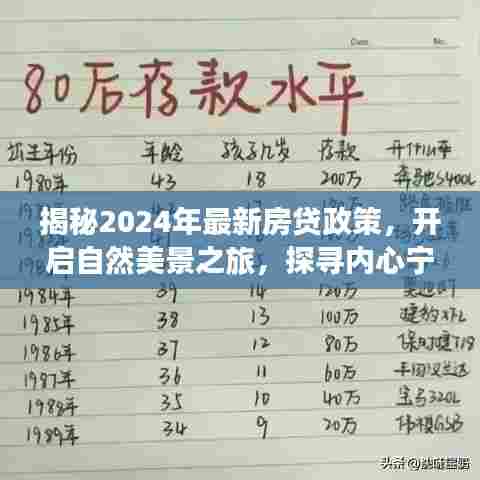 Date. No.
80后存款水平
出生年份 年龄 孩子几岁 存款 开什么车
1980年 43 18 200万 奔驰S400L
揭秘2024年最新房贷政策，开
启自然美景之旅，探寻内心宁
1984年 39 14 120万
1985年 38 13 100万 捷豹XFL
1986年 37 12 80万 保时捷718
1987年 36 11 60万 丰田汉兰达
1988年 35 10 40万 宝马320L
1989年 34 9 20万 传祺GS8
头条